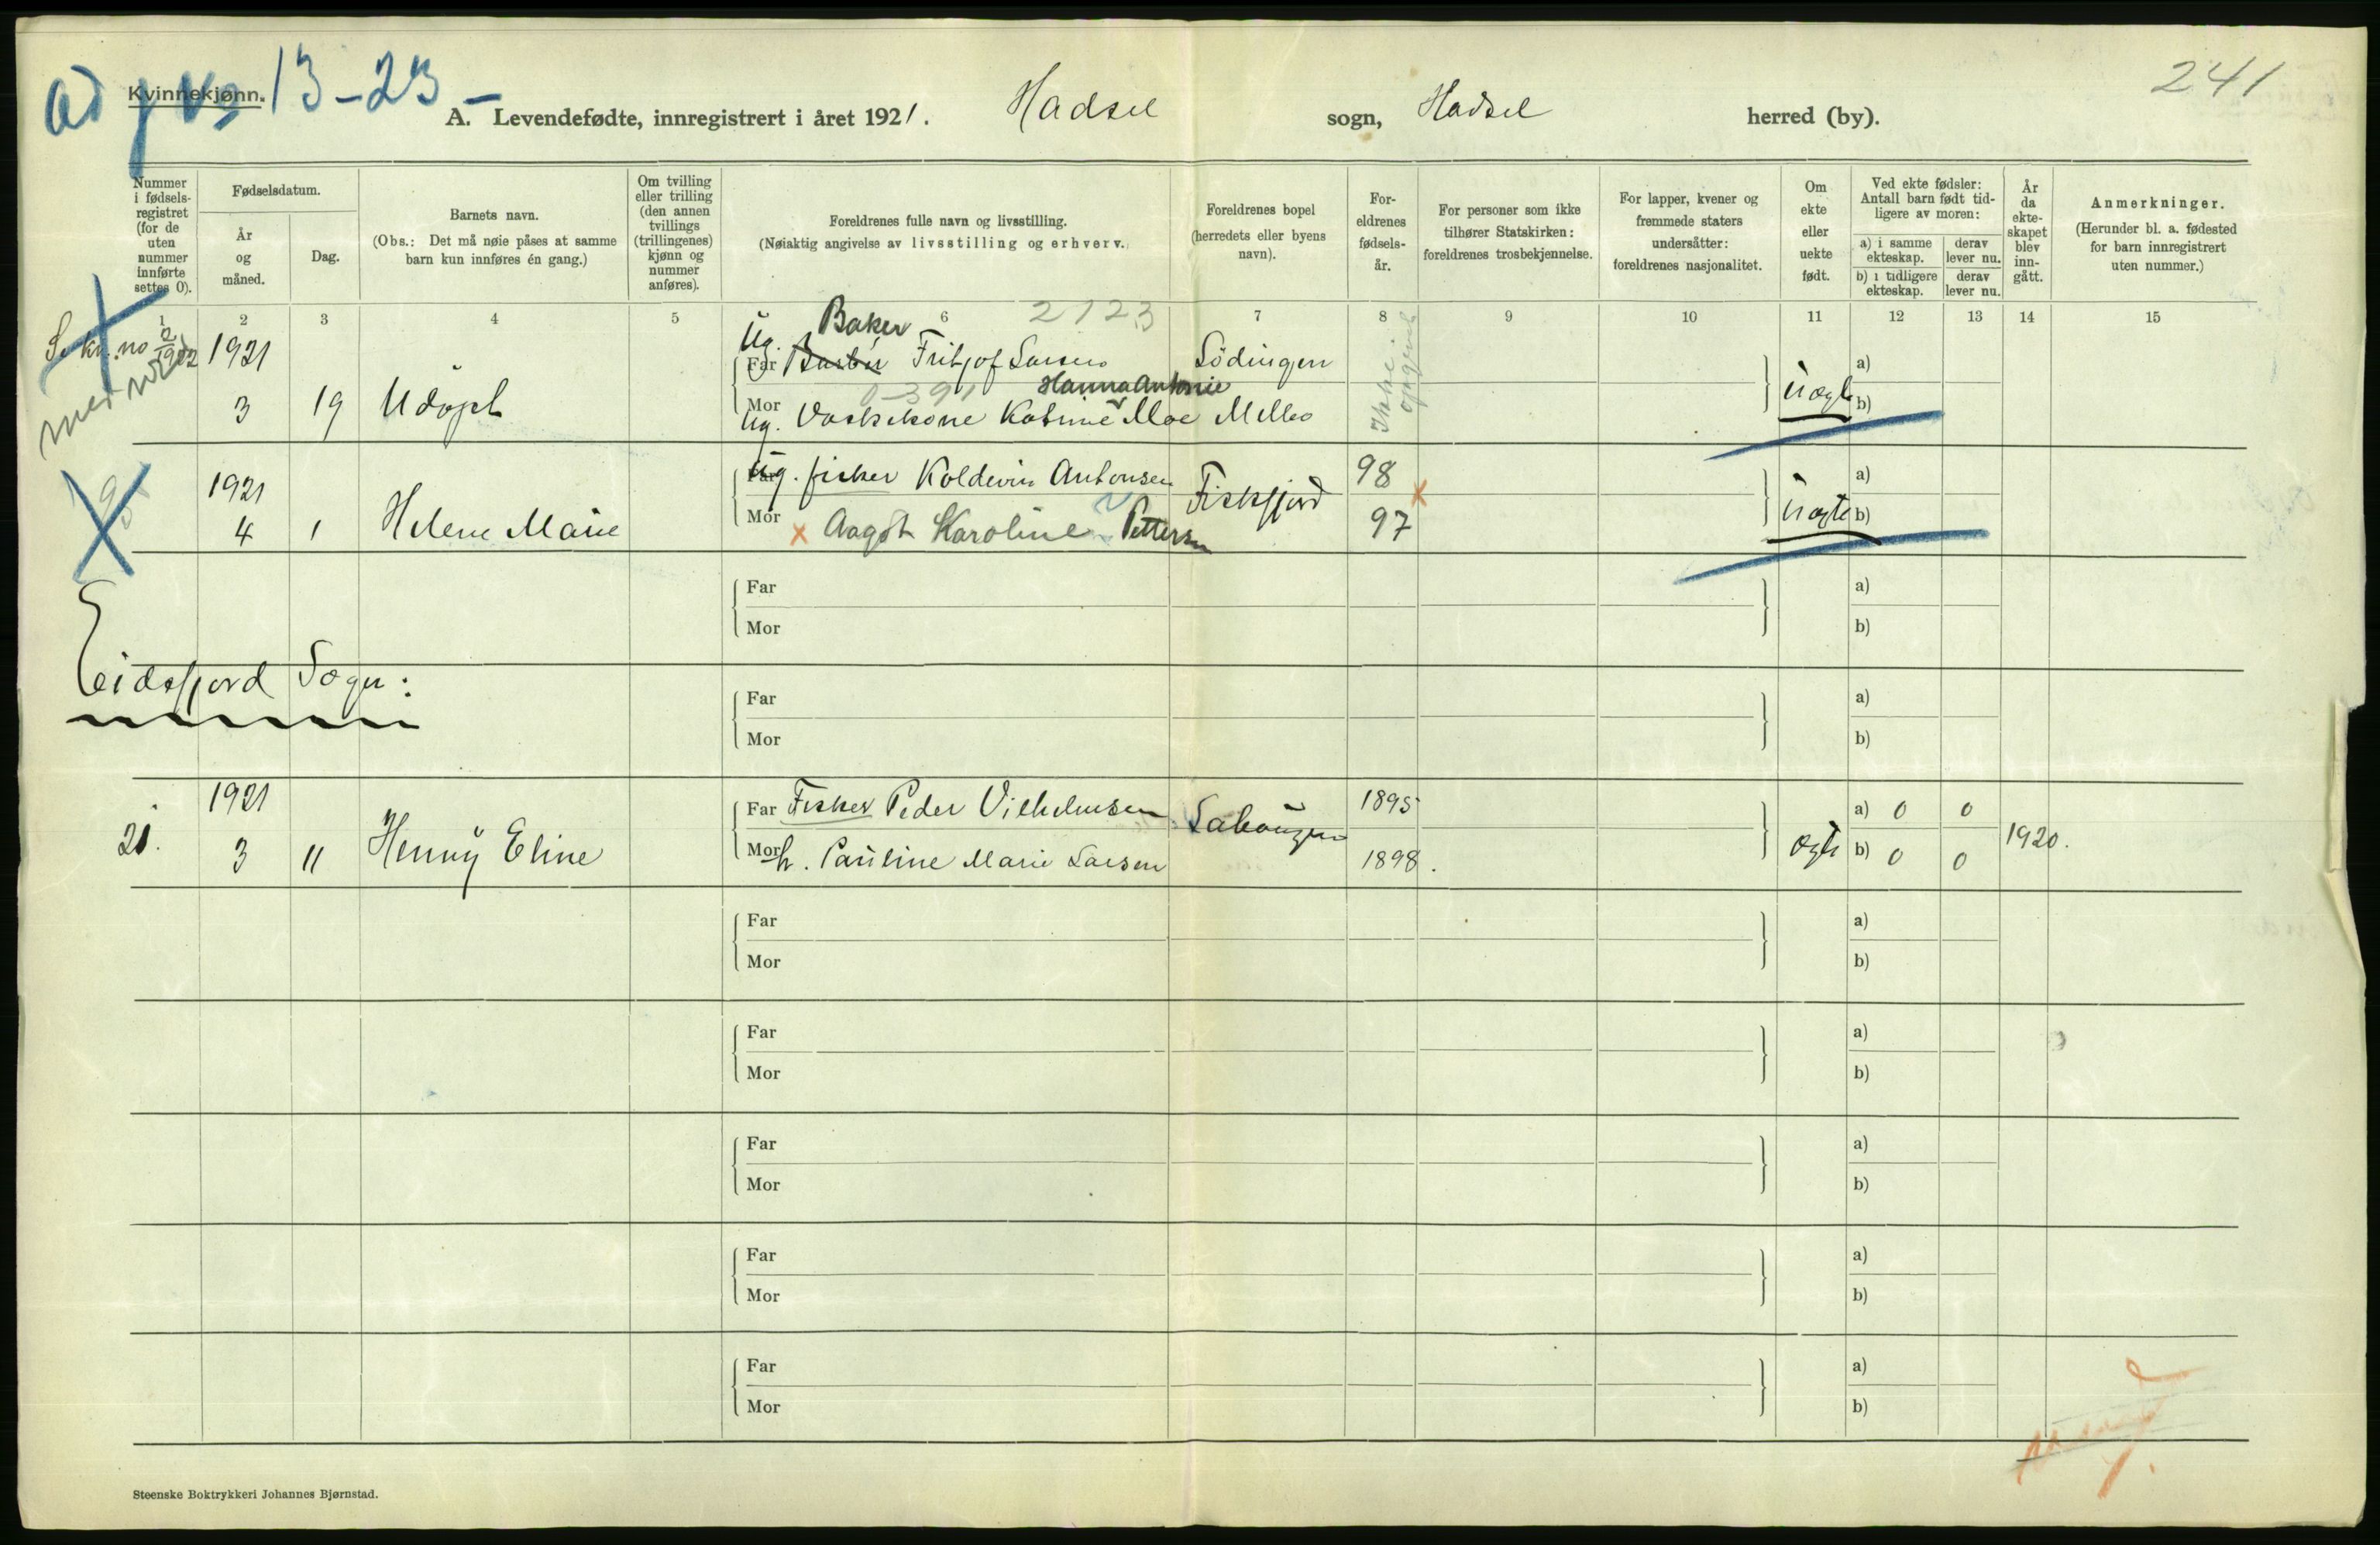 ad j. no 13-23-
241
Kvinnekjønn.
A. Levendefødte, innregistrert i året 1921. Hadsel sogn, Hadsel herred (by).
Nummer
i fødsels-
registret
(for de
uten
nummer
innførte
settes 0).
Fødselsdatum.
År
og
måned.
Dag.
Barnets navn.
(Obs.: Det må nøie påses at samme
barn kun innføres én gang.)
Om tvilling
eller trilling
(den annen
tvillings
(trillingenes)
kjønn og
nummer
anføres).
Foreldrenes fulle navn og livsstilling.
(Nøiaktig angivelse av livsstilling og erhverv.)
Foreldrenes bopel
(herredets eller byens
navn).
For-
eldrenes
fødsels-
år.
For personer som ikke
tilhører Statskirken:
foreldrenes trosbekjennelse.
For lapper, kvener og
fremmede staters
undersåtter:
foreldrenes nasjonalitet.
Om
ekte
eller
uekte
født.
Ved ekte fødsler:
Antall barn født tid-
ligere av moren:
a) i samme
ekteskap.
derav
lever nu.
b) i tidligere
ekteskap.
derav
lever nu.
År
da
ekte-
skapet
blev
inn-
gått.
Anmerkninger.
(Herunder bl. a. fødested
for barn innregistrert
uten nummer.)
1 2 3 4 5 6 7 8 9 10 11 12 13 14 15
2123
Baker
1921 Ug. Far Barber Fritjof Larsen Lödingen Ikke opgivet a)
0-391 Hanna Antonie
3 19 Udöpt Mor Ug. Vaskekone Katrine Moe Melbo uægte b)
1921 Far Ug. fisker Koldevin Antonsen Fiskfjord 98 a)
4 1 Helene Marie Mor x Aagot Karoline Pettersen 97 x uægte b)
Far a)
Mor b)
Eidsfjord Sogn:
Far a)
Mor b)
1921 Far Fisker Peder Vilhelmsen 1895 a) 0 0
21. 3 11 Henny Eline Mor h. Pauline Marie Larsen 1898. ægte b) 0 0 1920.
Far a)
Mor b)
Far a)
Mor b)
Far a)
Mor b)
Far a)
Mor b)
Far a)
Mor b)
Steenske Boktrykkeri Johannes Bjørnstad.